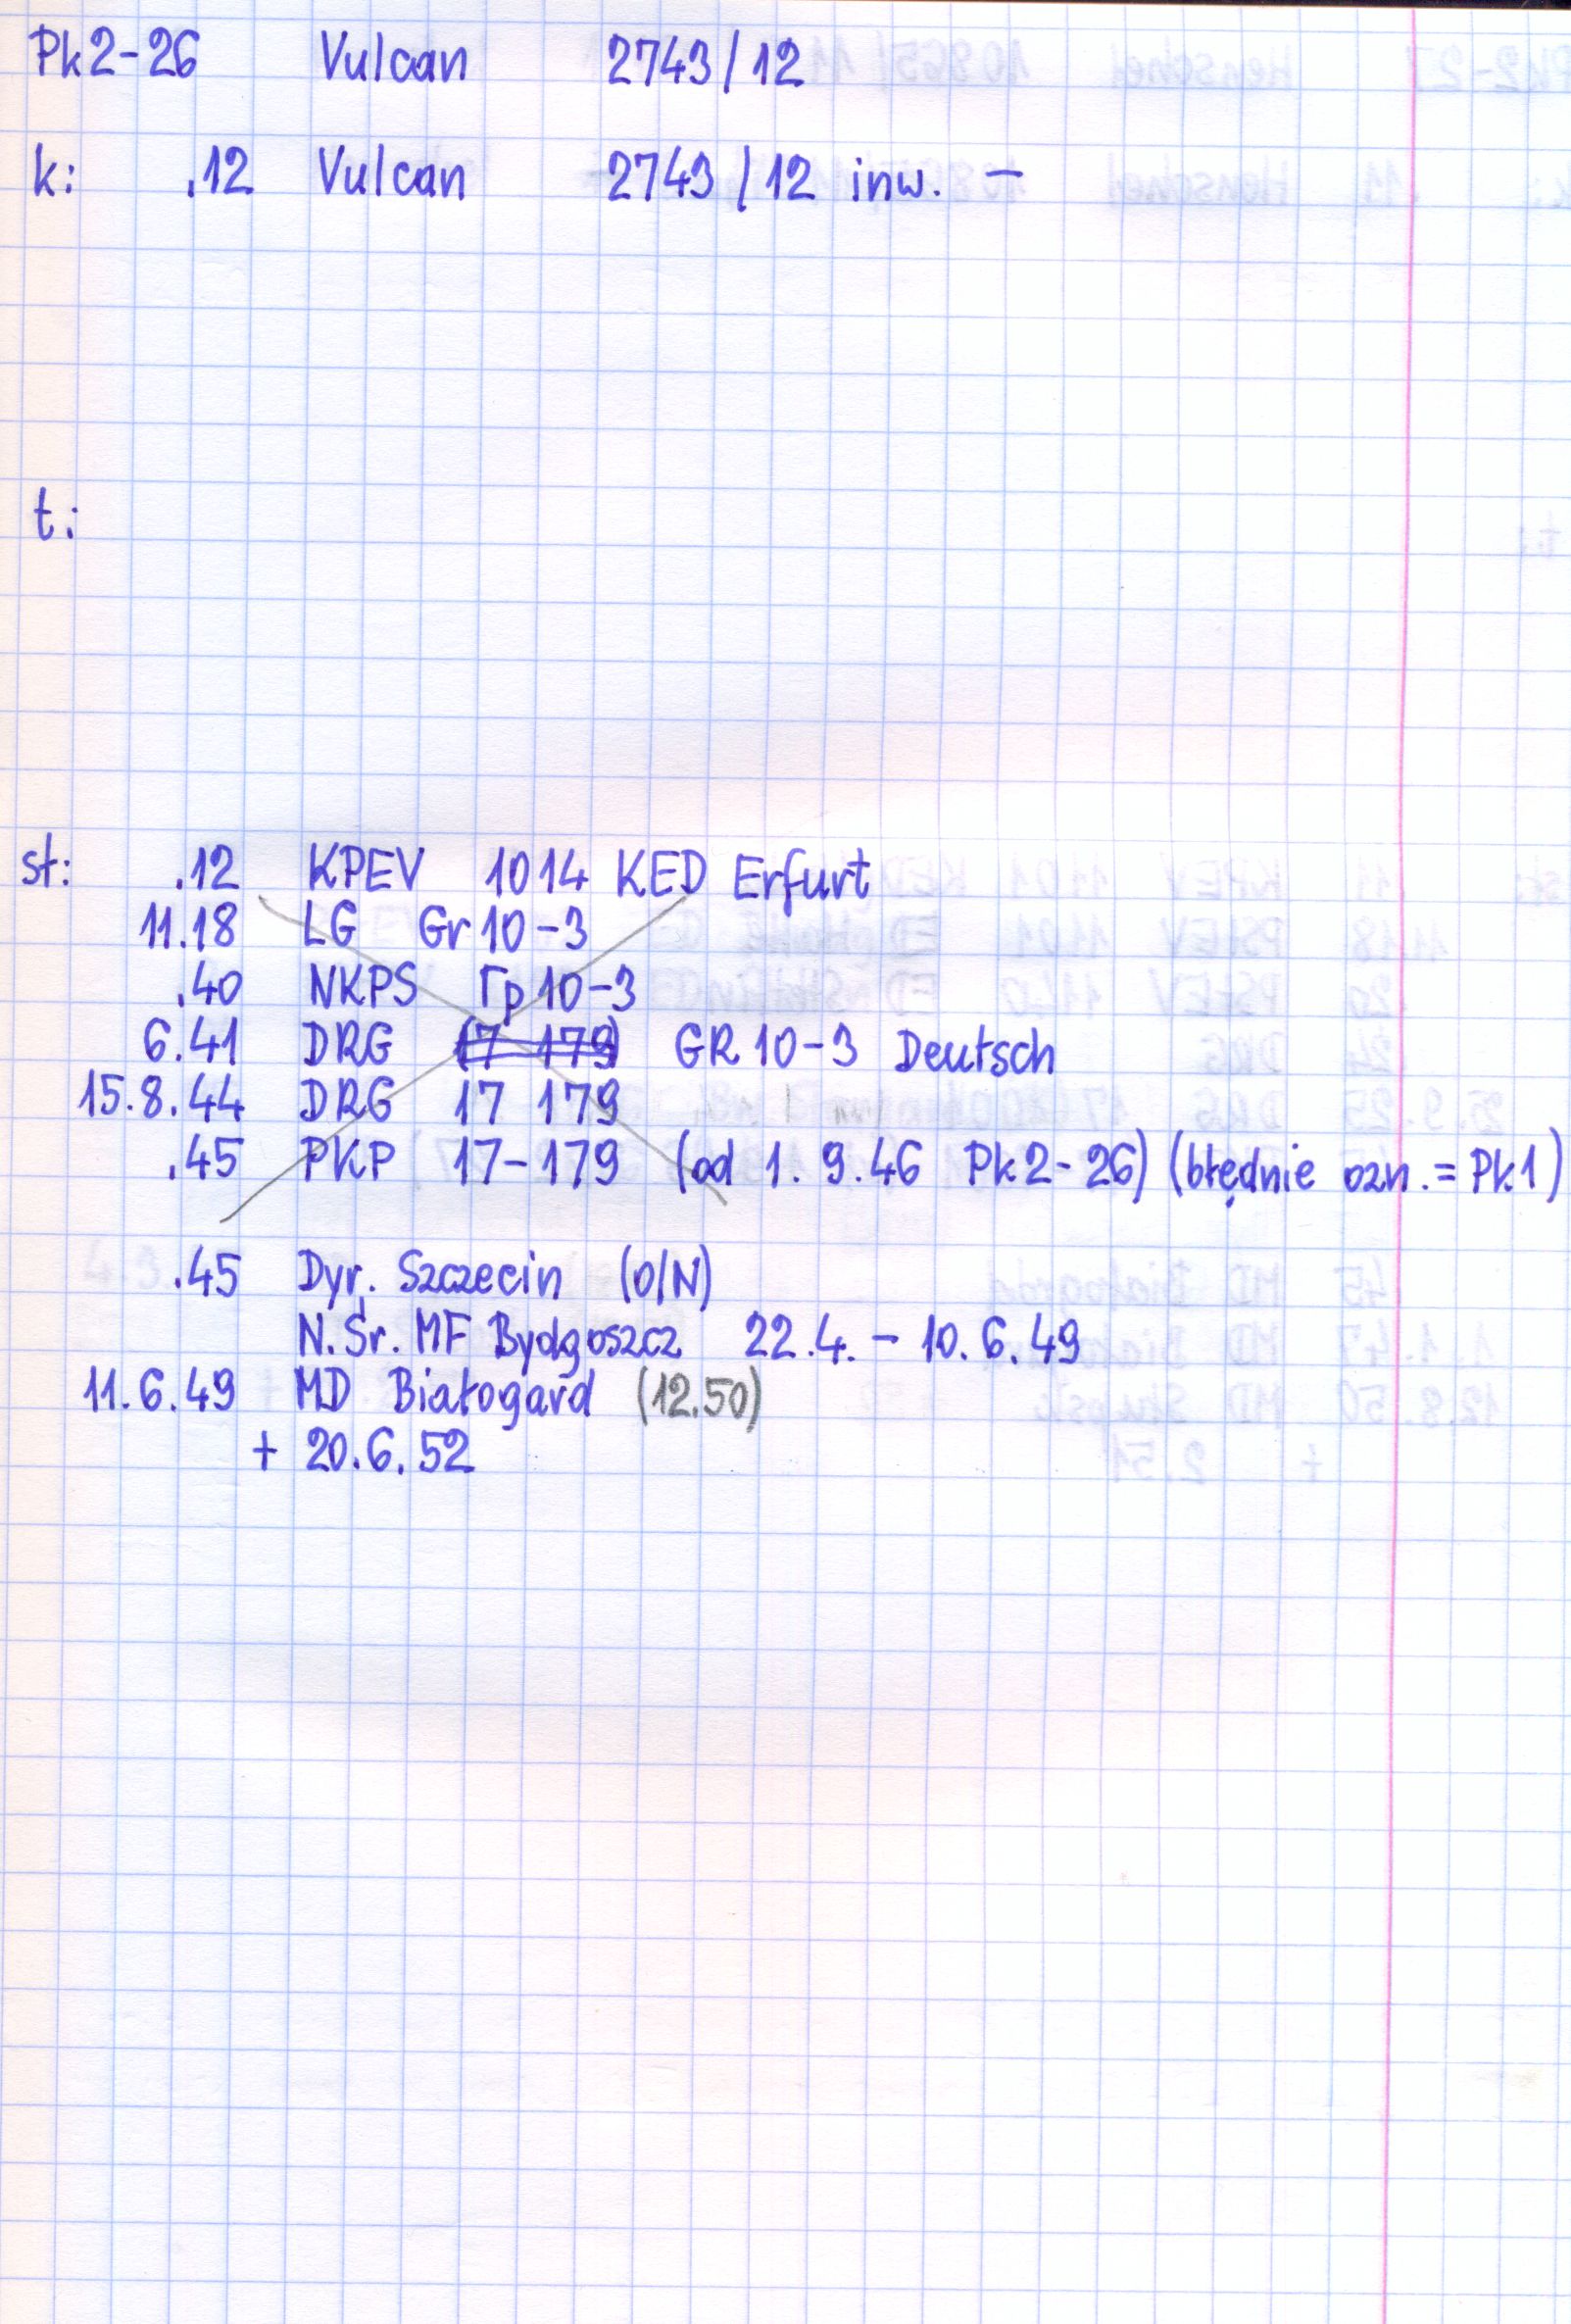 Pk2-26 Vulcan 2743/12
k: .12 Vulcan 2743/12 inw. —
t:
st: .12 KPEV 1014 KED Erfurt
11.18 LG Gr 10-3
.40 NKPS Гр 10-3
6.41 DRG (17 179) GR 10-3 Deutsch
15.8.44 DRG 17 179
.45 PKP 17-179 (od 1.9.46 Pk2-26) (błędnie ozn. = Pk1)
.45 Dyr. Szczecin (O/N)
N.Śr. MF Bydgoszcz 22.4. - 10.6.49
11.6.49 MD Białogard (12.50)
+ 20.6.52